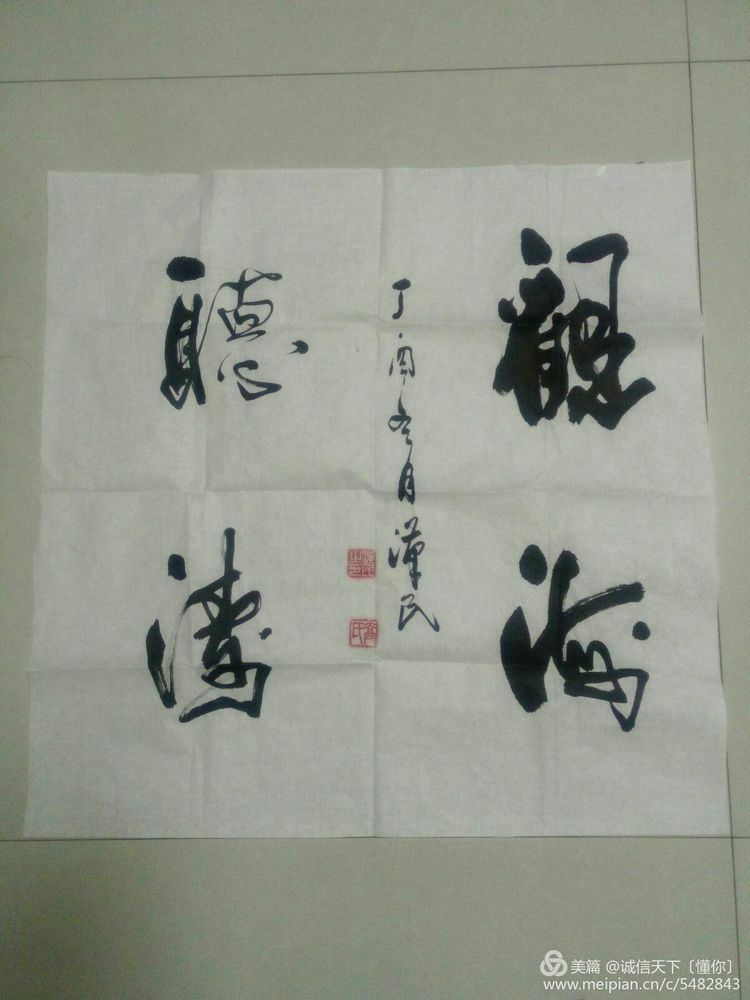 觀海
聽濤
丁酉冬月漢民
高氏
美篇 @诚信天下〔懂你〕
www.meipian.cn/c/5482843